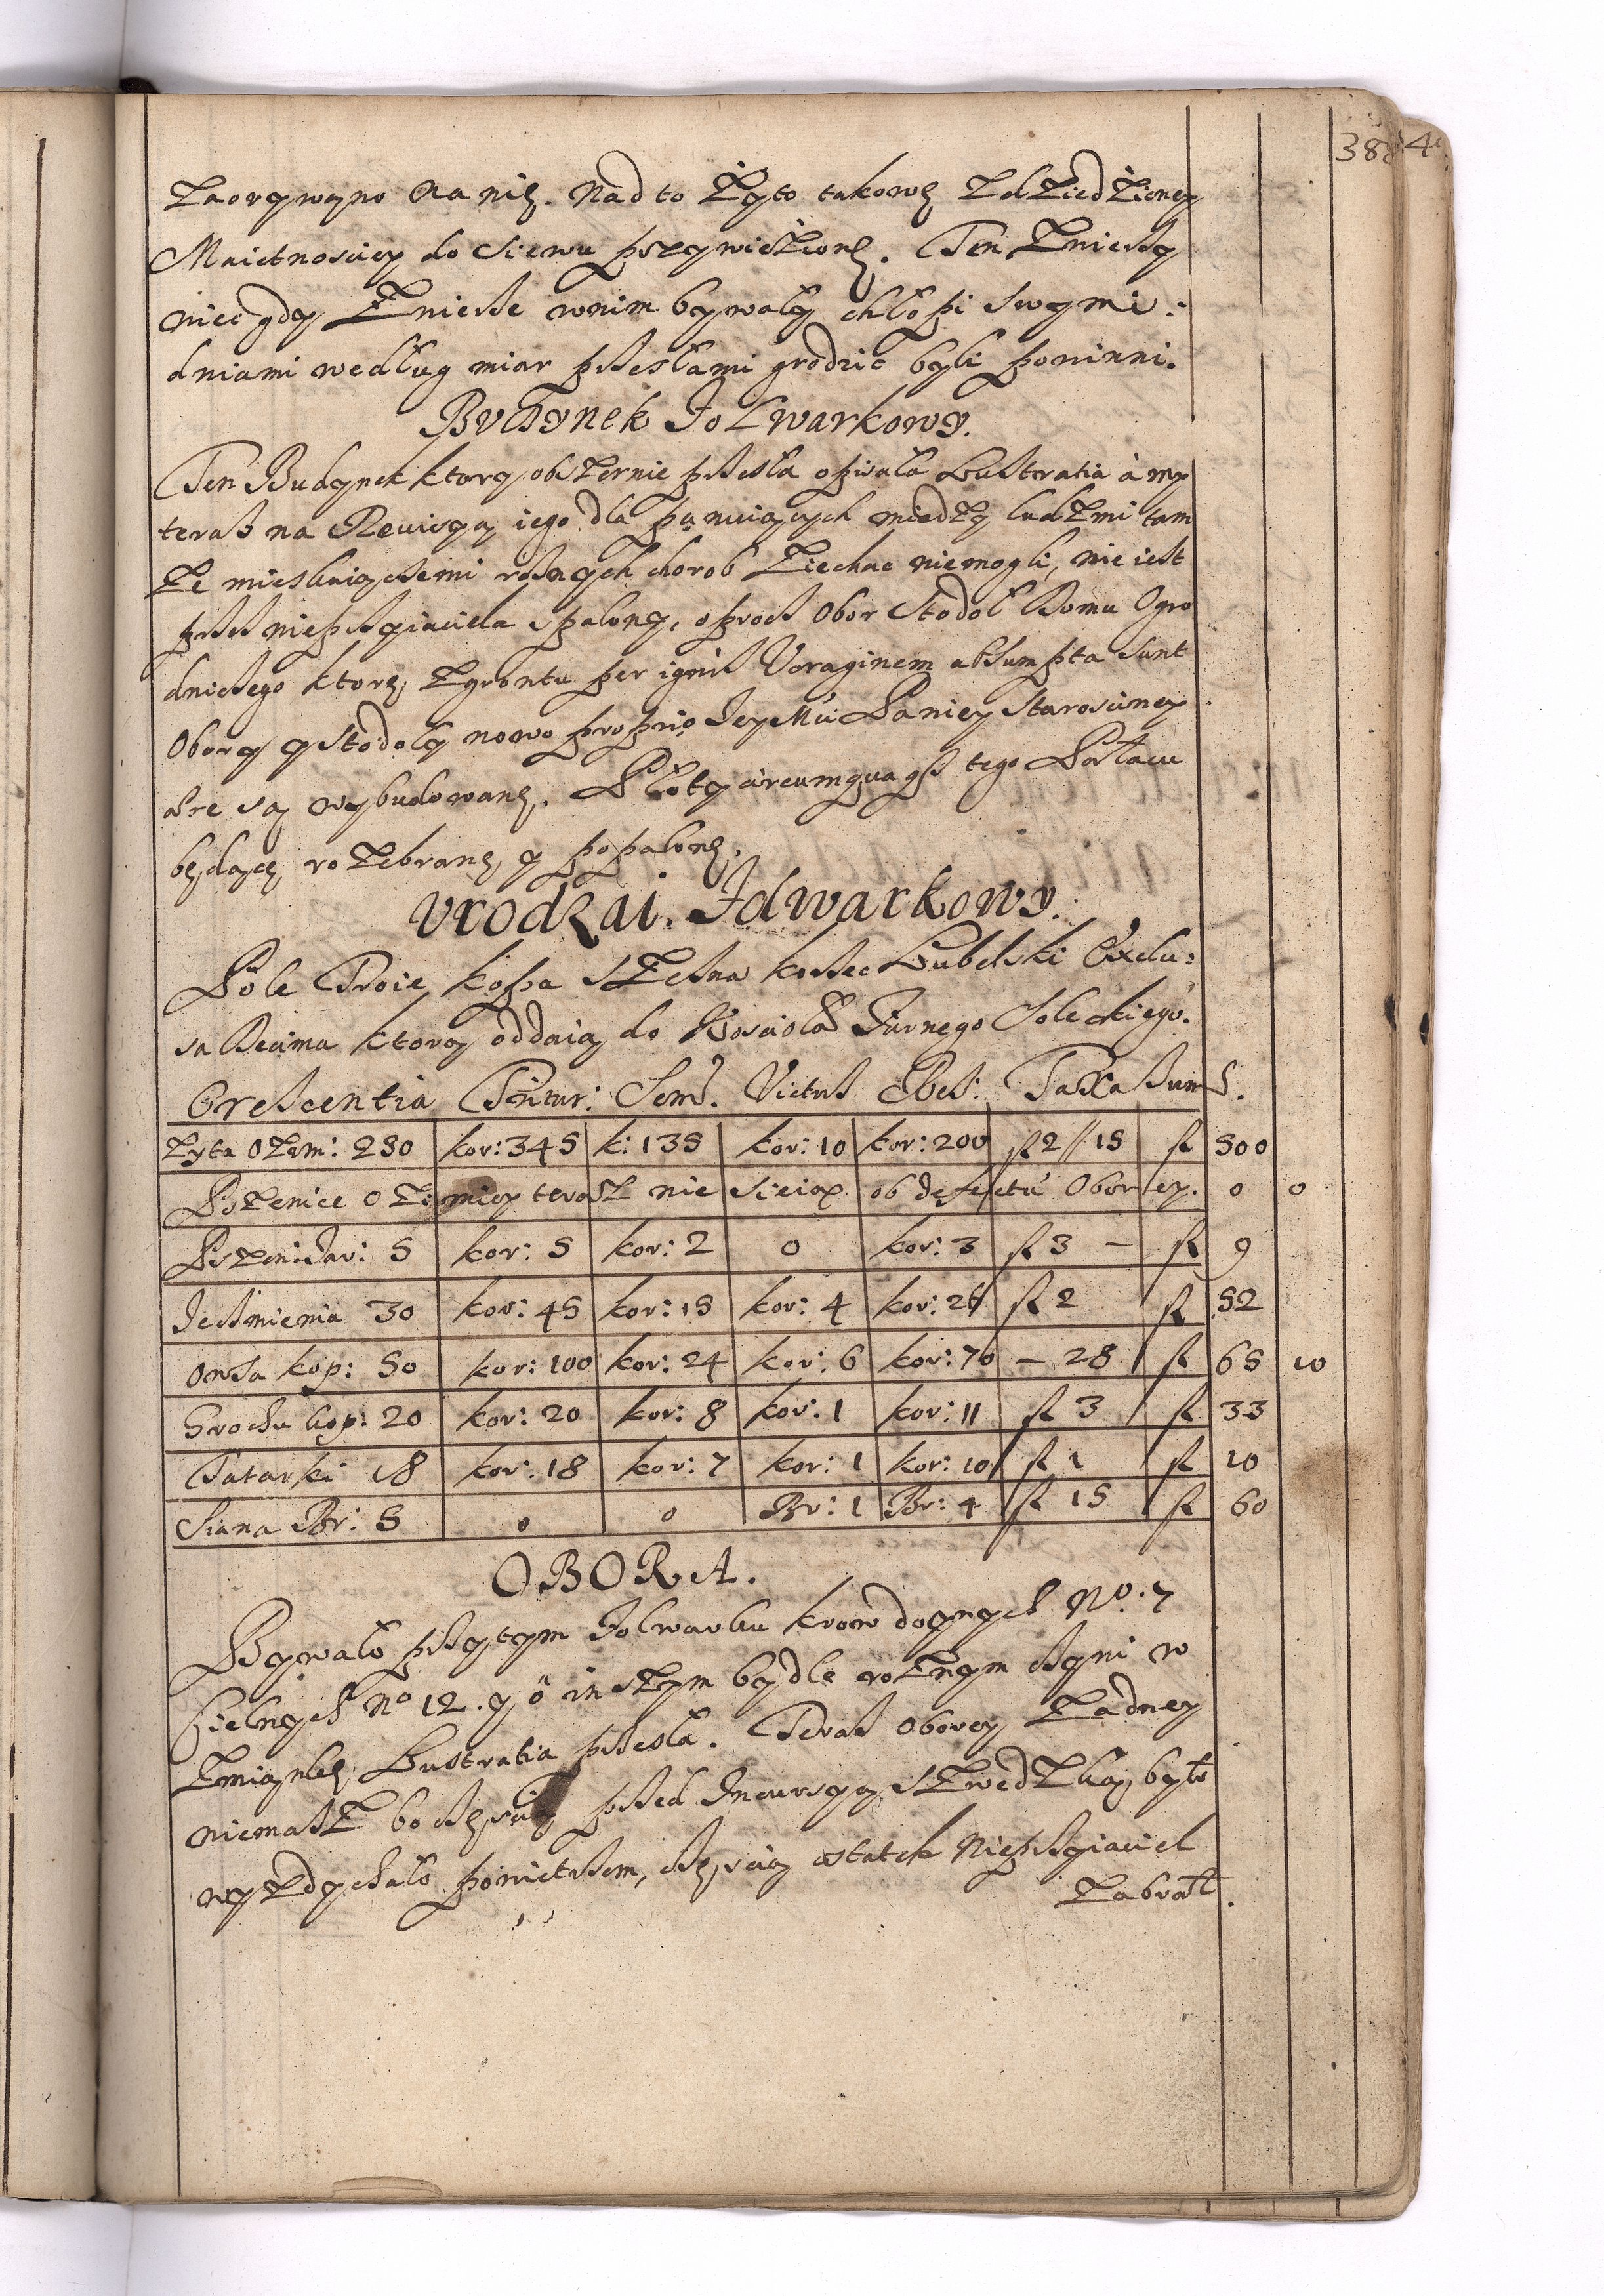 38
4
Zaorywano na nię. Nad to Zyto takowe ZdZiedZiczney
Maietnosciey do Siewu przywieZione. Ten Zniesky
niec gdy Zniesse w nim bywały chłopi swymi:
dniami według miar przesłami grodzic byli powinni.
BVDynek FoLwarkowy.
Ten Budynek ktory obszernie przeszła opisała Lustratia à my
teraz na Rewisyą iego dla panuiących miedzy ludzmi tam
Ze mieszkaiącemi roznych chorob Ziechac niemogli, nie iest
przez nieprzyiaciela spalony, oprocz Obor Stodoł Domu Ogro
dniczego ktore Zgruntu per ignis Voraginem absumpta sunt
Obory y Stodoły nowo proprio Jey Mci Paniey Starosciney
ære są wybudowane. Płoty circumquaq3 tego Pałacu
będące roZebrane y popalone.
Vrodzai Folwarkowy.
Pole Troie, kopa sZedna korzec Lubelski Exclu:
sa Decima ktorą oddaią do Koscioła Farnego Soleckiego.
Crescentia Tritur: Sem. Victus Rest: Taxa Sum S.
Zyta OZim: 230 kor: 345 k: 135 kor: 10 kor: 200 fl 2 // 15 fl 500
PszZenice OZimiey terasZ nie sieią ob defectu Oborey. 0 0
PszZeni: Jar: 5 kor: 5 kor: 2 0 kor: 3 fl 3 – fl 9
Jeczmienia 30 kor: 45 kor: 15 kor: 4 kor: 26 fl 2 fl 52
Owsa kop: 50 kor: 100 kor: 24 kor: 6 kor: 70 – 28 fl 65 10
Grochu kop: 20 kor: 20 kor: 8 kor: 1 kor: 11 fl 3 fl 33
Tatarki 18 kor: 18 kor: 7 kor: 1 kor: 10 fl 1 fl 10
Siana Br: 5 0 0 Br: 1 Br: 4 fl 15 fl 60
OBORA.
Bywało przytym Folwarku krow doynych No. 7
Cielnych No 12. y ô inszym bydle roZnym czyni w
Zmiankę Lustratia przeszła. Teraz oborey Zadney
niemasZ bo częscią przed Incursyą SZwedZką było
wyZdychało powietrzem, częscią ostatek Nieprzyiaciel
Zabrał.